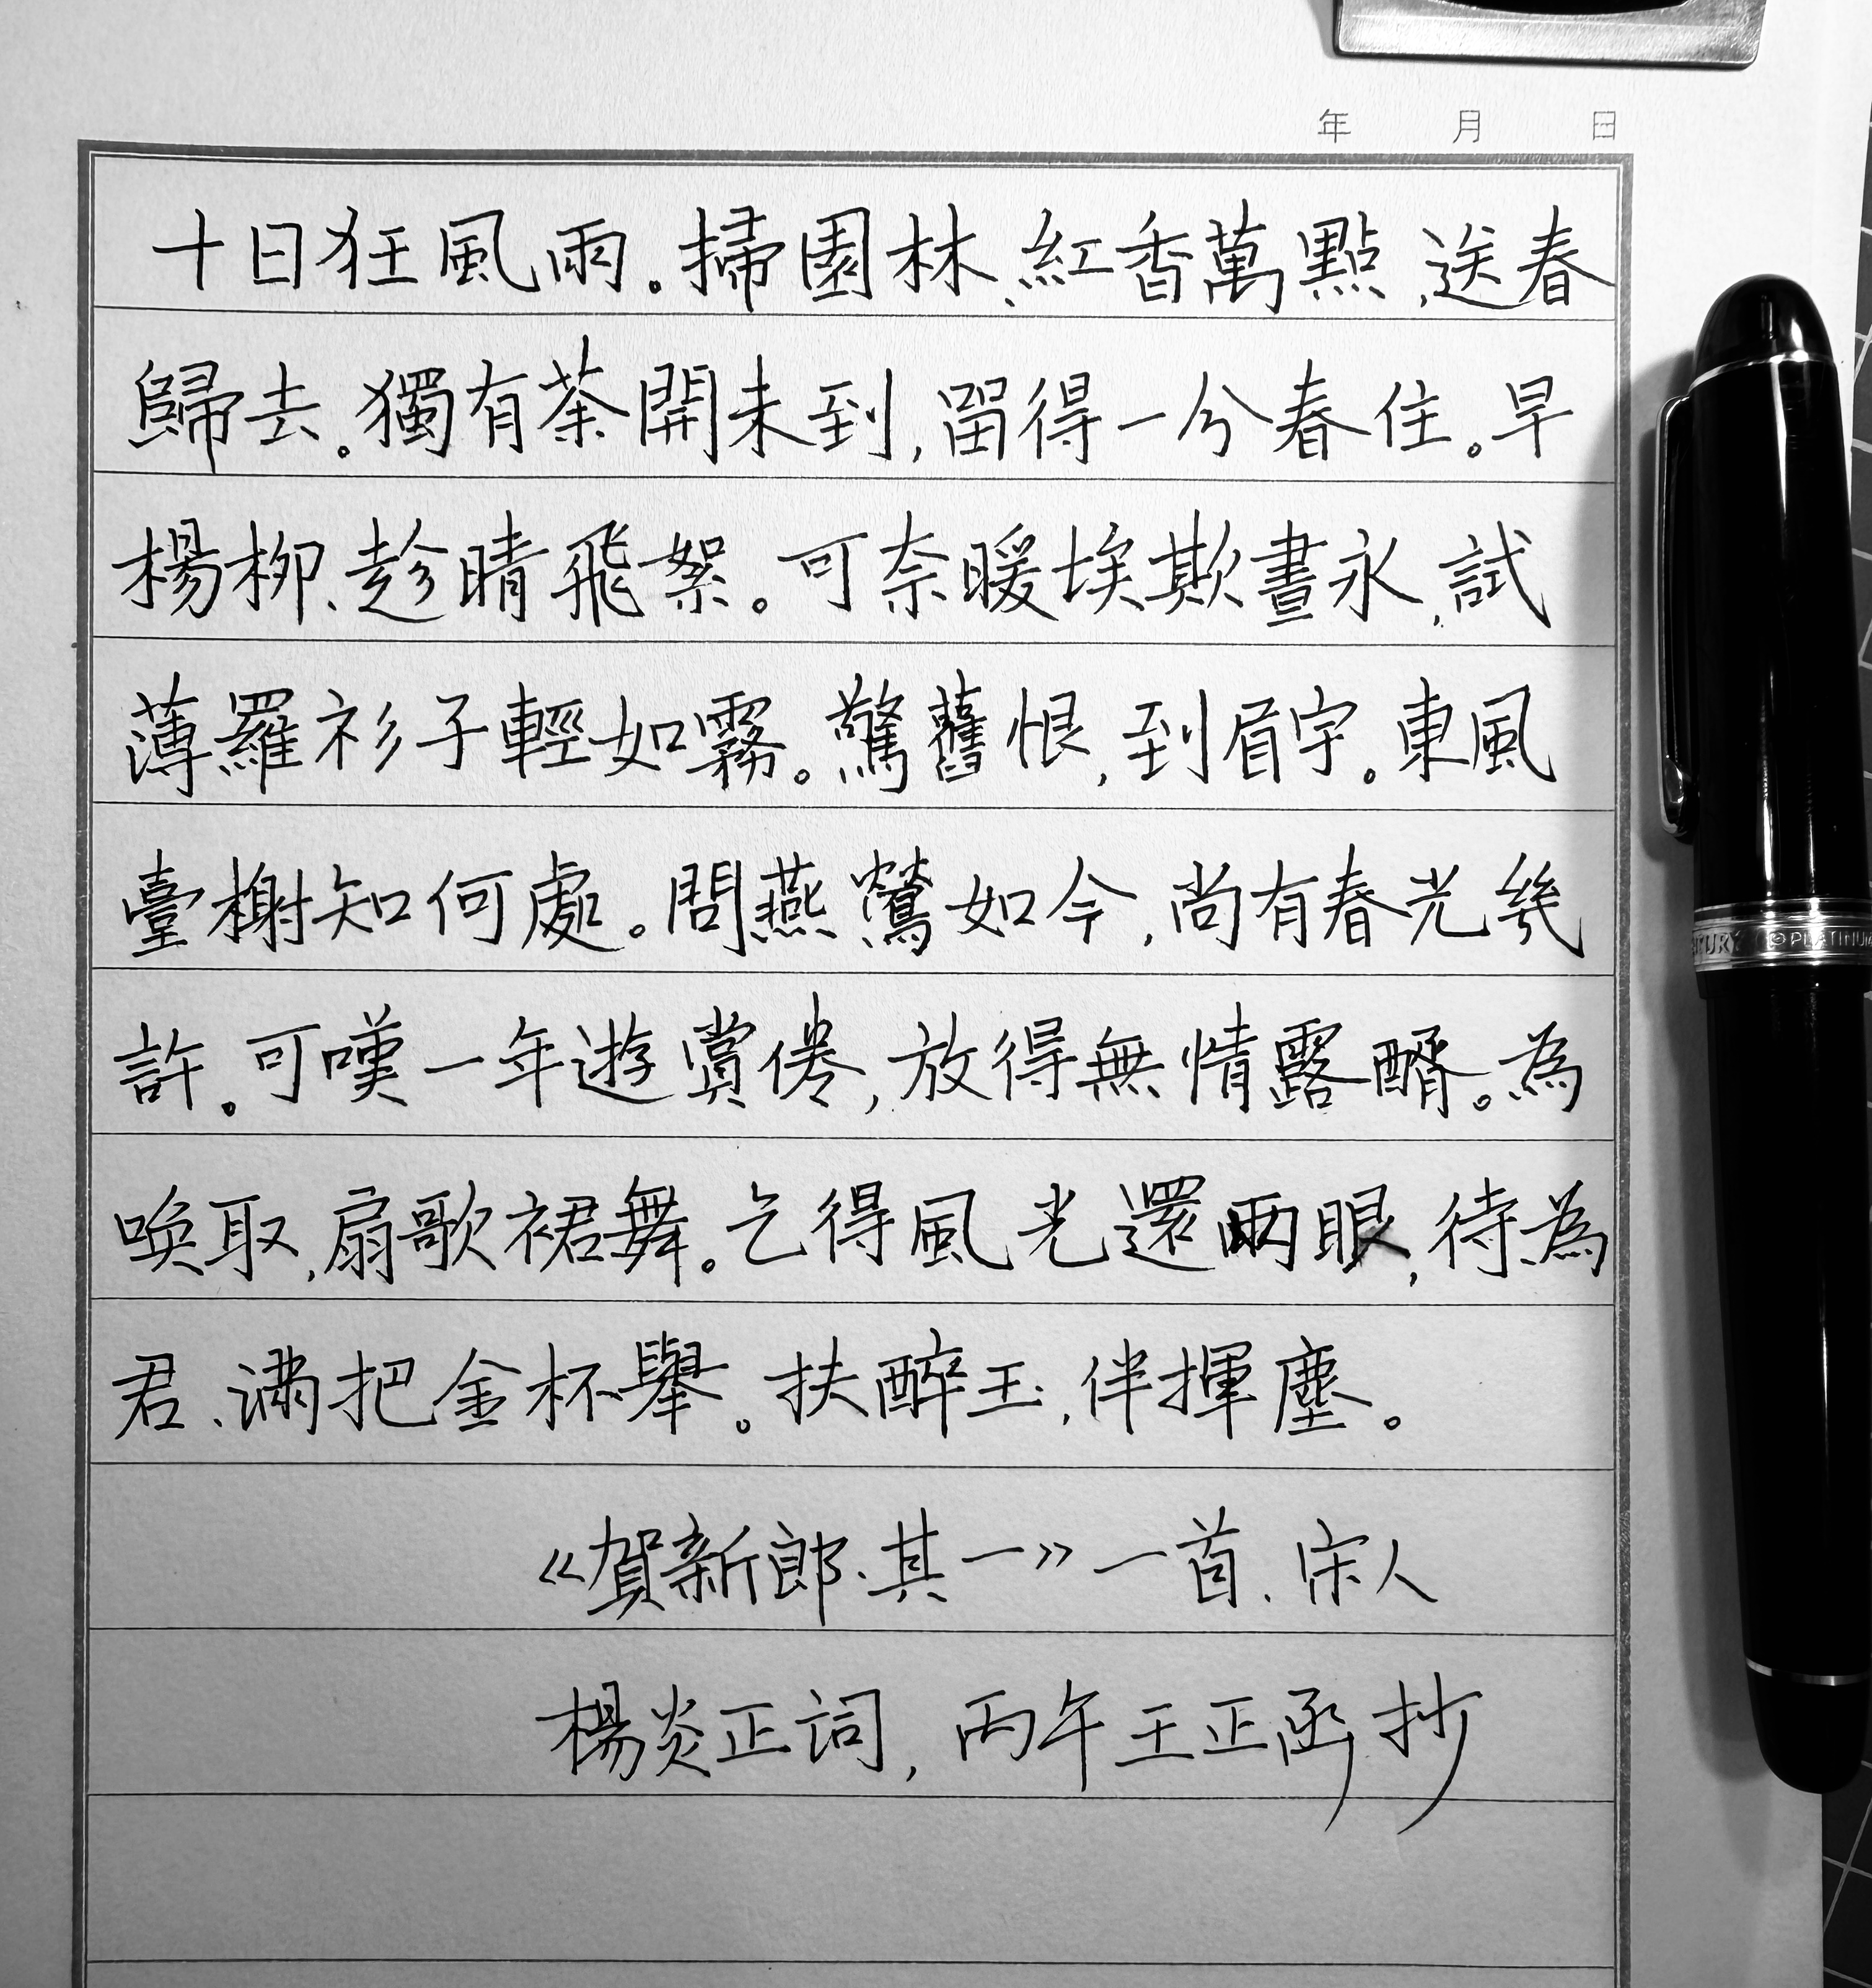 年 月 日
十日狂風雨。掃園林、紅香萬點,送春
歸去。獨有荼開未到,留得一分春住。早
楊柳、趁晴飛絮。可奈暖埃欺晝永,試
薄羅衫子輕如霧。驚舊恨,到眉宇。東風
臺榭知何處。問燕鶯如今,尚有春光幾
許。可嘆一年遊賞倦,放得無情露醑。為
喚取,扇歌裙舞。乞得風光還兩眼,待為
君、滿把金杯舉。扶醉玉,伴揮塵。
《賀新郎·其一》一首、宋人
楊炎正詞,丙午王正函抄
PLATINUM